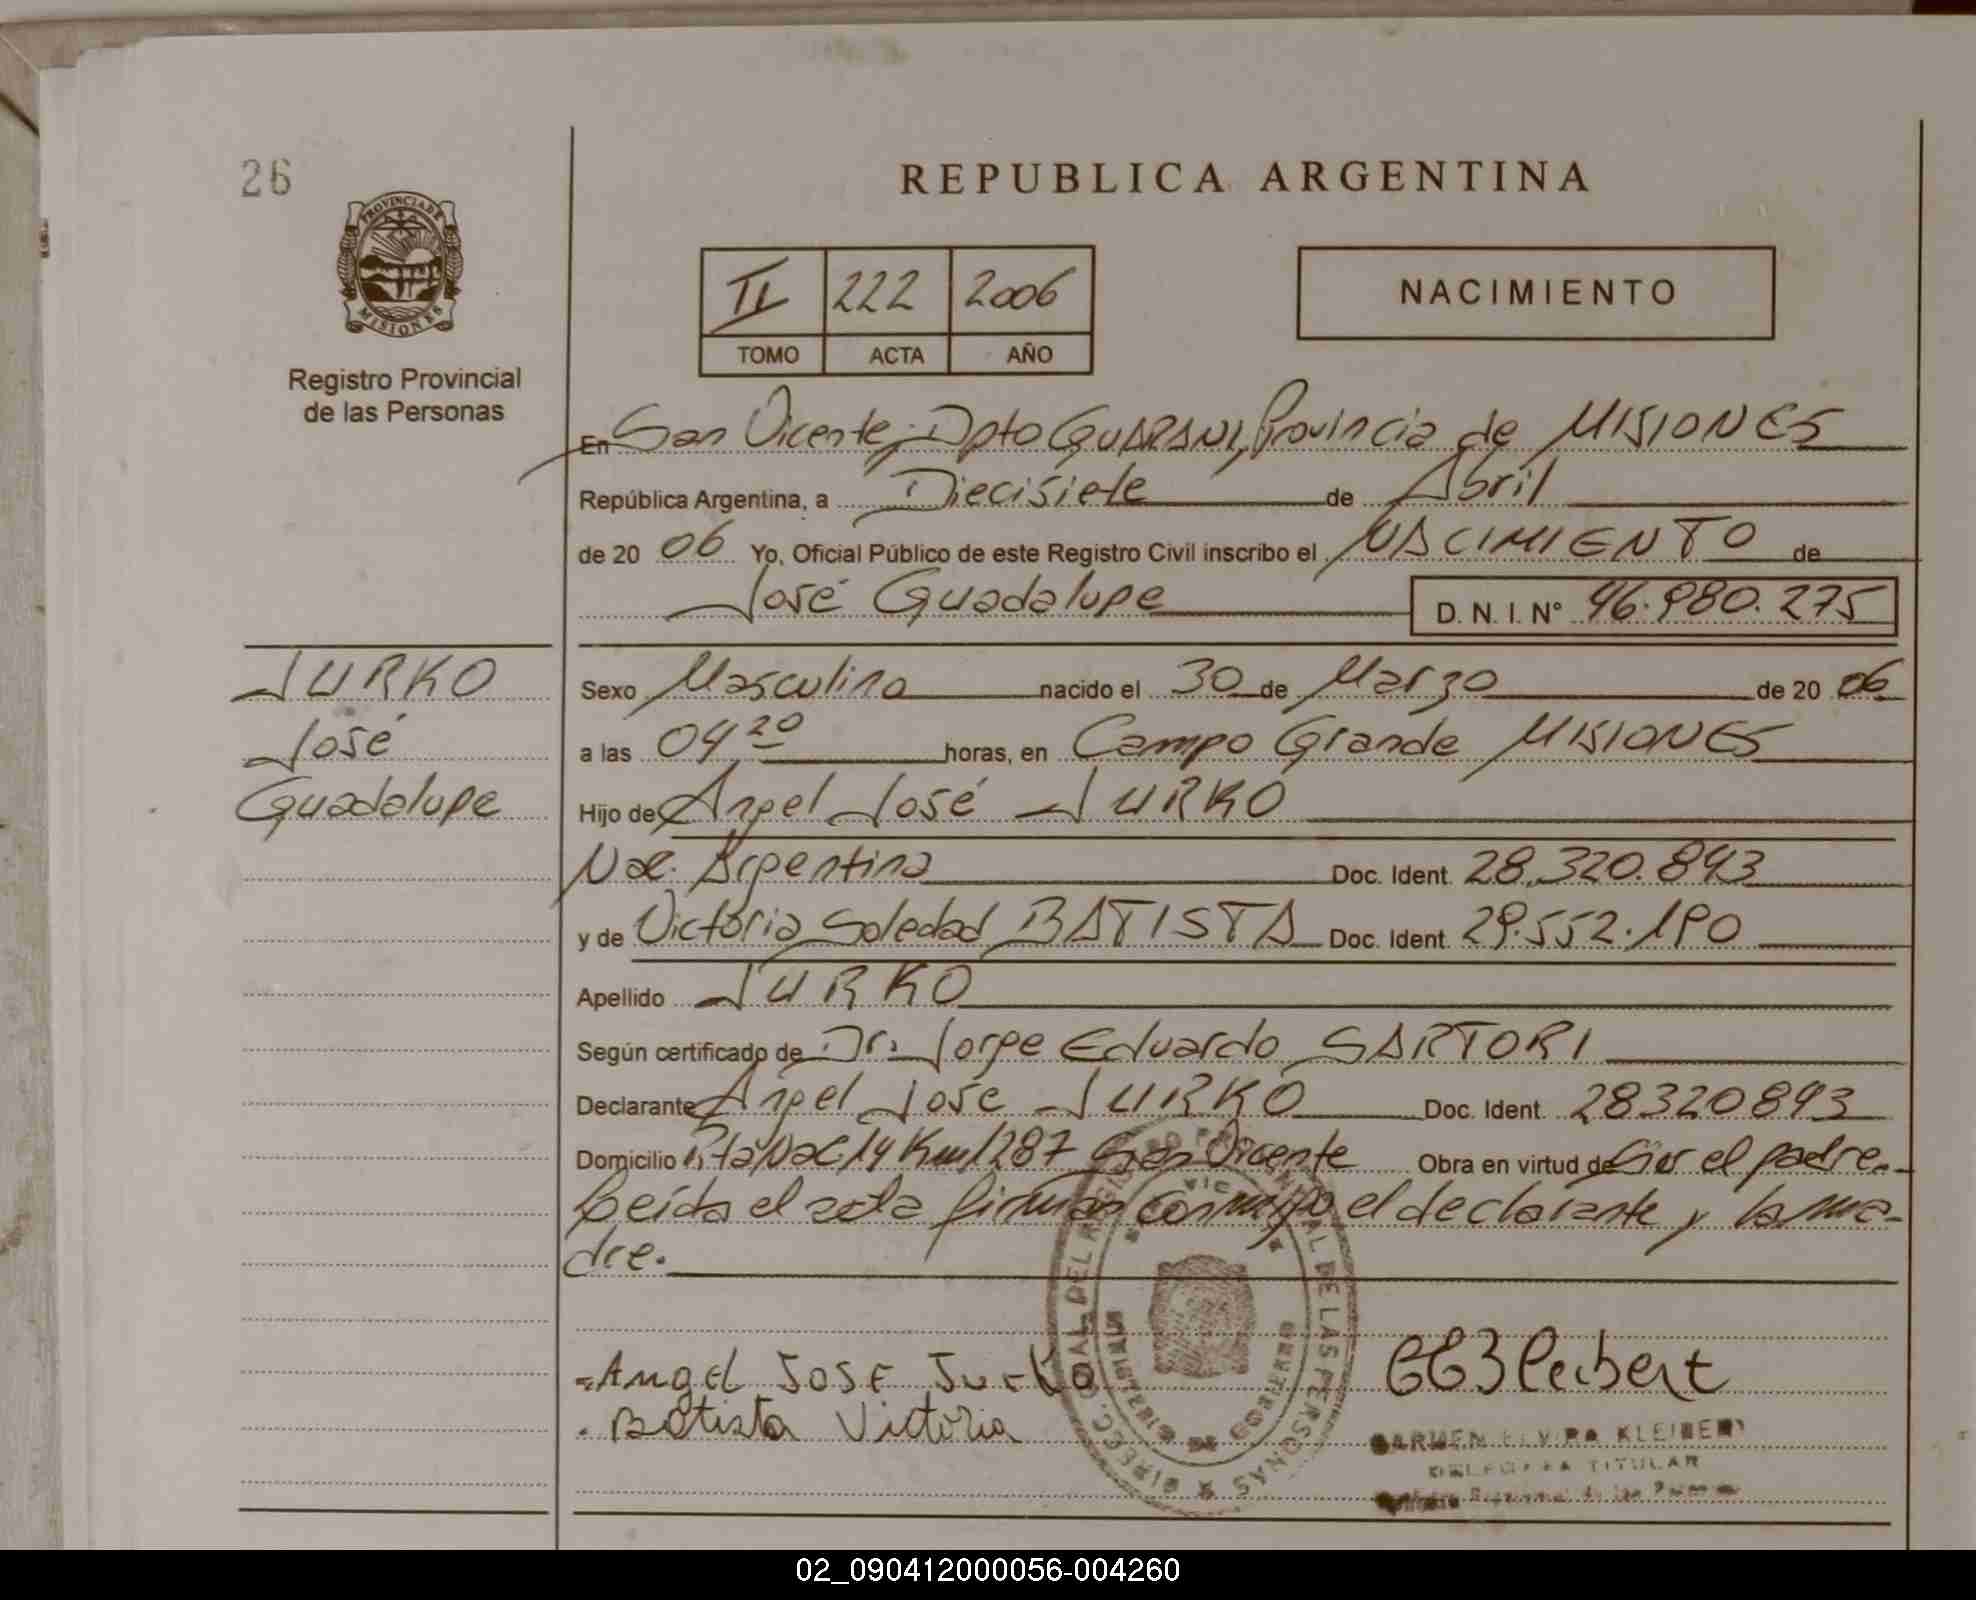 26
REPUBLICA ARGENTINA
PROVINCIA DE
MISIONES
Registro Provincial
de las Personas
II 222 2006
TOMO ACTA AÑO
NACIMIENTO
En San Vicente, Dpto GUARANI, Provincia de MISIONES
República Argentina, a Diecisiete de Abril
de 20 06 Yo, Oficial Público de este Registro Civil inscribo el NACIMIENTO de
José Guadalupe D. N. I. Nº 46.980.275
JURKO
José
Guadalupe
Sexo Masculino nacido el 30 de Marzo de 20 06
a las 04 20 horas, en Campo Grande MISIONES
Hijo de Angel José JURKO
Nac. Argentina Doc. Ident. 28.320.893
y de Victoria Soledad BATISTA Doc. Ident. 29.552.190
Apellido JURKO
Según certificado de Dr. Jorge Eduardo SARTORI
Declarante Angel José JURKO Doc. Ident. 28320893
Domicilio Rta Nac. 14 Km 1287 San Vicente Obra en virtud de Ser el padre.
Leída el acta firman conmigo el declarante y la ma-
dre.
ANGEL JOSE JURKO
Batista Victoria
DIRECC. GRAL. DEL REGISTRO PROVINCIAL DE LAS PERSONAS
MINISTERIO DE GOBIERNO
CARMEN ELVIRA KLEIBERT
DELEGADA TITULAR
de las Personas
02_090412000056-004260